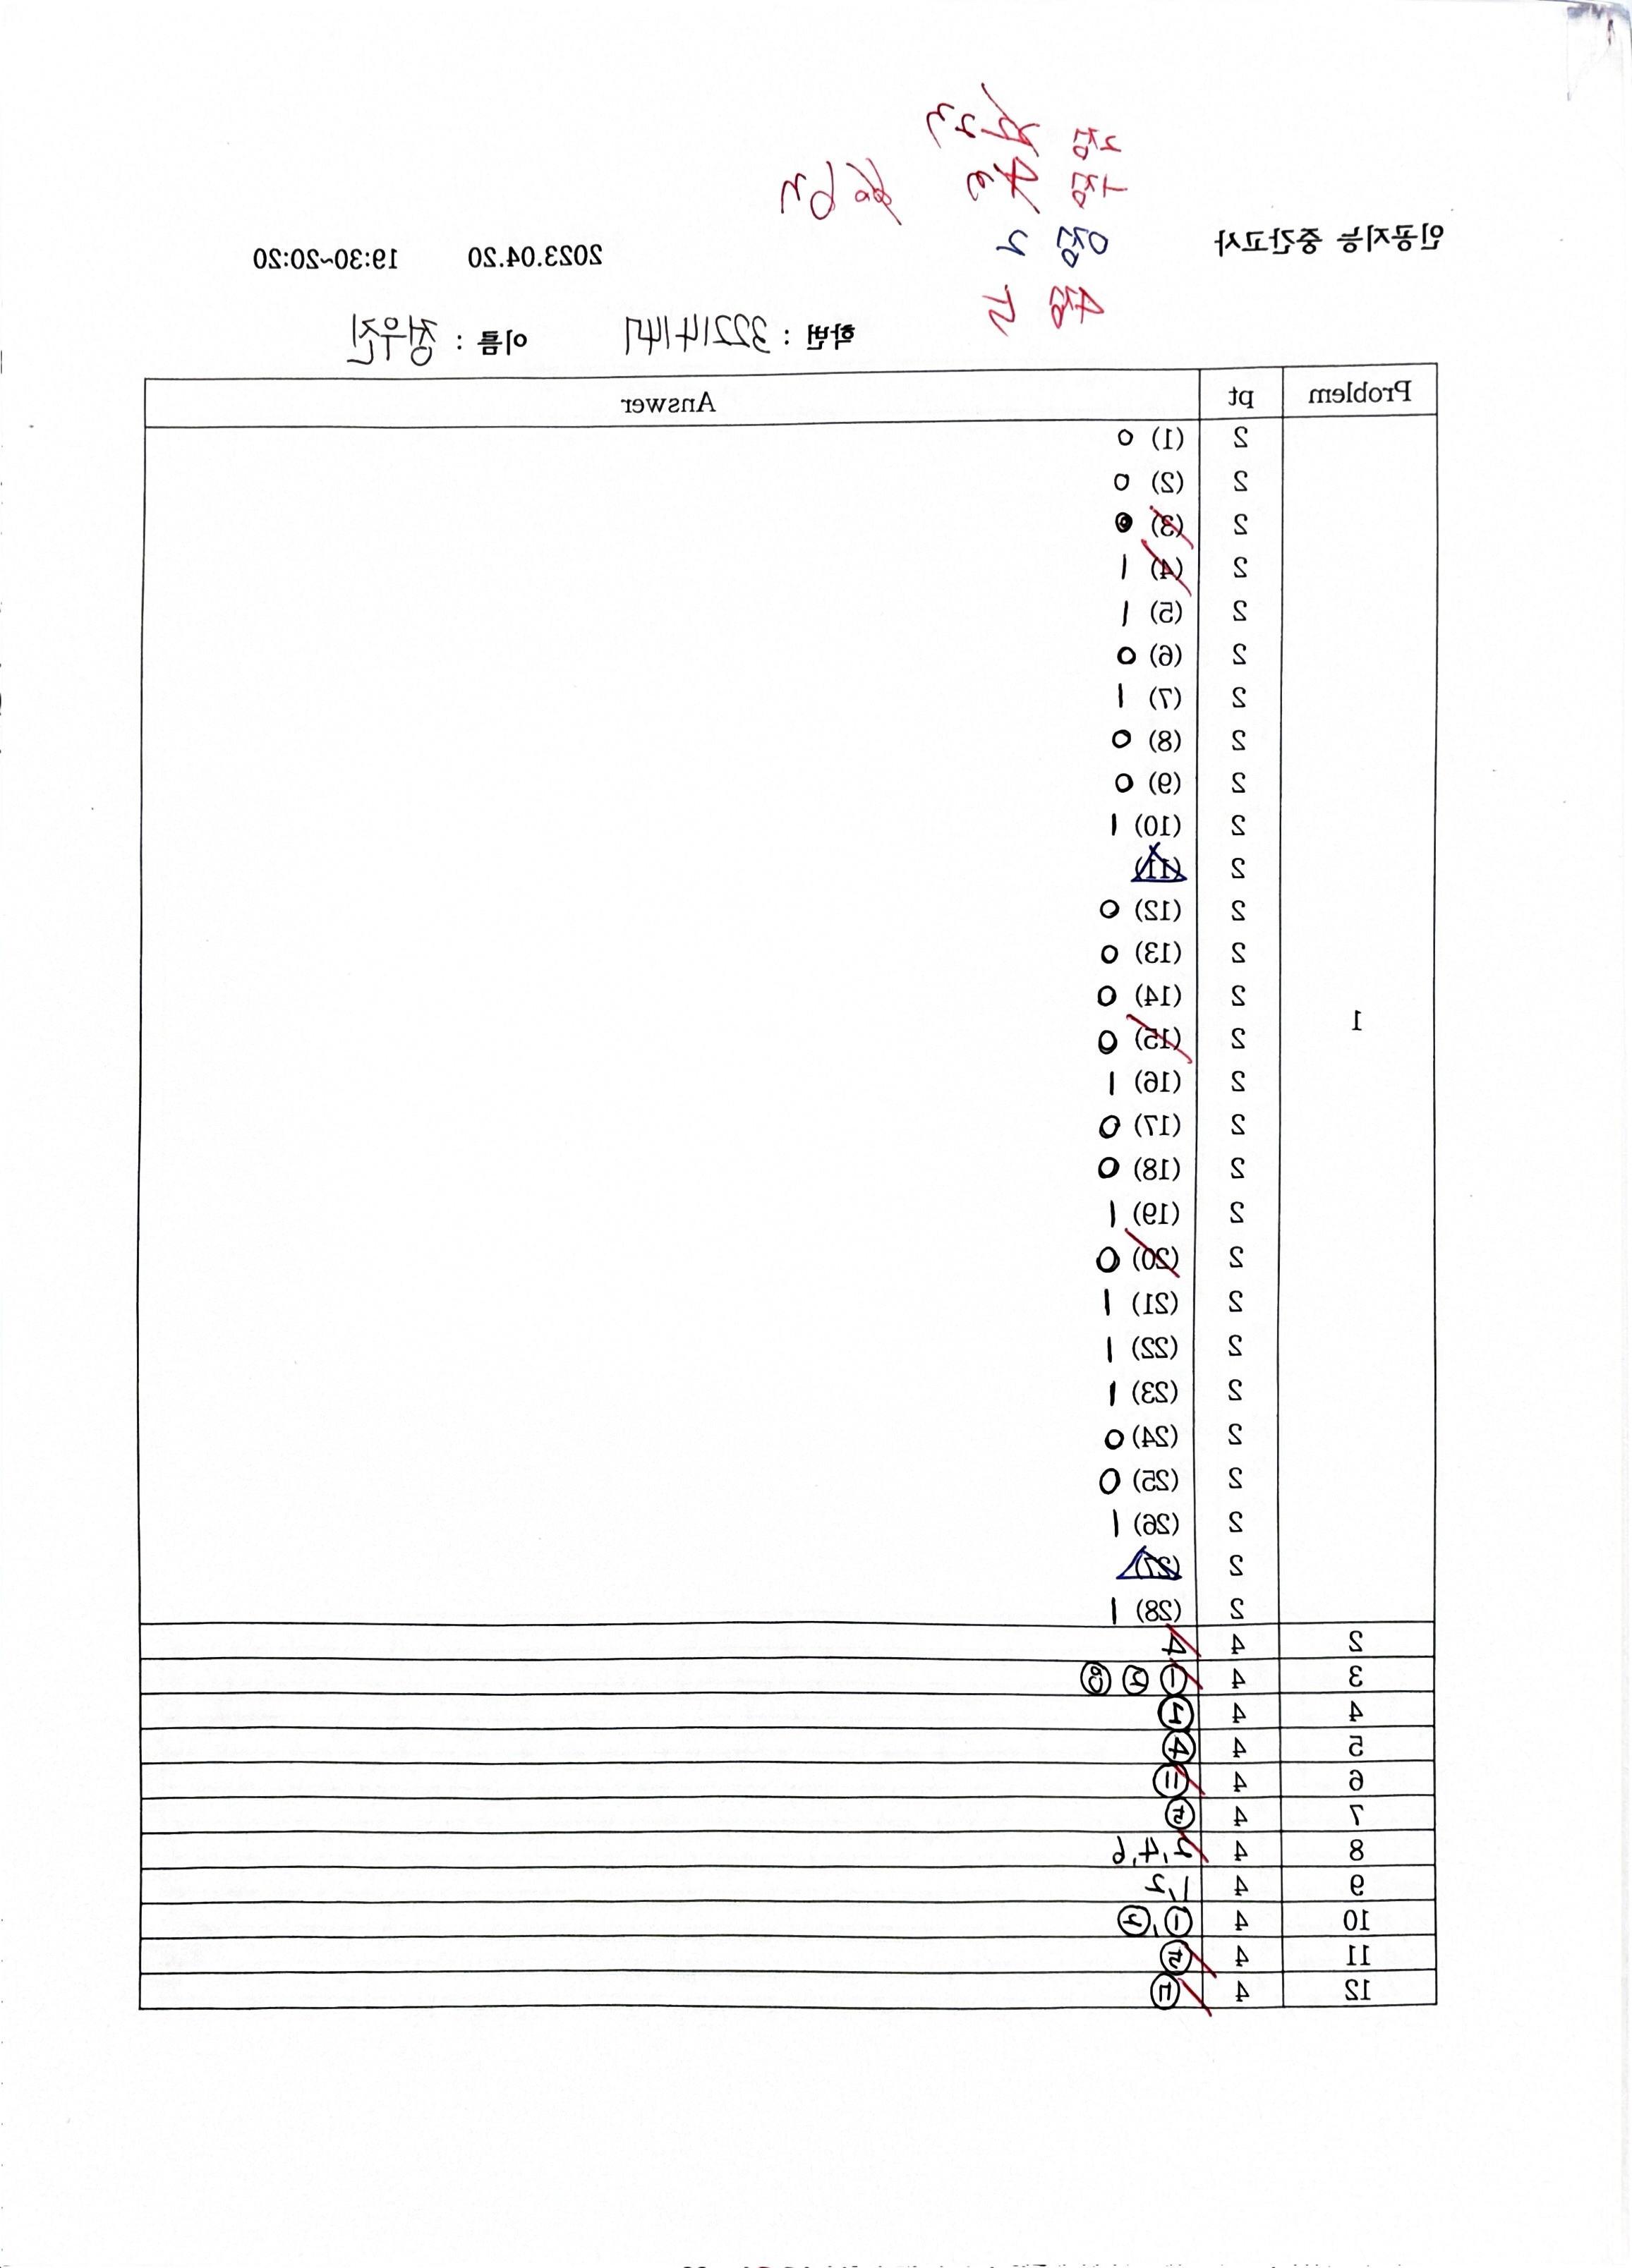 2점
1점
0점 2
4점
인공지능 중간고사 2023.04.20 19:30~20:20
학번 : 32214147 이름 : 정우진
Problem pt Answer
1
2 (1) 0
2 (2) 0
2 (3)
2 (4) 1
2 (5) 1
2 (6) 0
2 (7) 1
2 (8) 0
2 (9) 0
2 (10) 1
2 (11)
2 (12) 0
2 (13) 0
2 (14) 0
2 (15) 0
2 (16) 1
2 (17) 0
2 (18) 0
2 (19) 1
2 (20) 0
2 (21) 1
2 (22) 1
2 (23) 1
2 (24) 0
2 (25) 0
2 (26) 1
2 (27)
2 (28) 1
2 4 4
3 4 ① ② ⑧
4 4 ①
5 4 ④
6 4 ⑪
7 4 ⑤
8 4 2,4,6
9 4 1,2
10 4 ①,②
11 4 ⑤
12 4